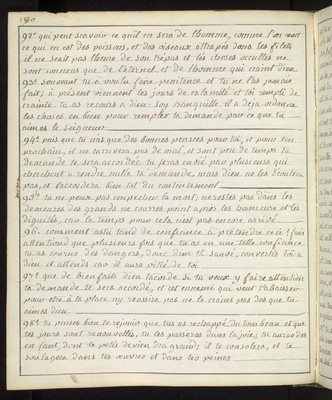 180
92.e qui peut scavoir ce quil en sera de l'homme, comme l'on voit
ce que en est des poissons, et des oiseaux attrapés dans les filets
il ne scait pas l'heure de son trépas et les choses occultes ne
sont connues que de l'eternel et de l'homme qui craint dieu
93.e souvent tu a voulu faire penitence et tu ne l'as jamais
fait; à present viennent les jours de calamité et toi rempli de
crainte tu as recours a dieu: soy tranquille il a deja ordonné
les choses en bien pour remplir ta demande par ce que tu
aimes le seigneur
94.e puis que tu n'as que des bonnes pensées pour toi, et pour ton
prochain, il ne t'arrivera pas de mal, et dans peu de temps ta
demande te sera accordée tu seras envié par plusieurs qui
chercheront a rendre nulle ta demande mais dieu ne les Ecoutera
pas, et t'accordera bien tot ton contentement
95.e tu ne peux pas empecher la mort; ne restes pas dans les
demeures des grands ne courre point après les honneurs et les
dignités, car le temps pour cela n'est pas encore arrivé
96. comment as tu tand de confiance à prétendre ceci! fais
attention que plusieurs fois que tu as eu une telle confiance
tu as courus des dangers, donc, dieu th sauvé, convertis toi a
dieu et alleurs il aura pitié de toi
97.e que de bienfaits dieu t'acorde si tu veux y faire attention
ta demande te sera accordé, et cet ennemi qui veut t'abaisser
pour etre à ta place ny reussira pas ne le crains pas des que tu
aimes dieu
98.e tu penses bien te rejouir que tu as rechappé du tombeau et que
tes jours sont renouvellés, tu les passeras dans la joie; tu auras un
enfant, dont le petit devien dra grand; il te consolera, et te
soulagera dans tes œuvres et dans tes peines